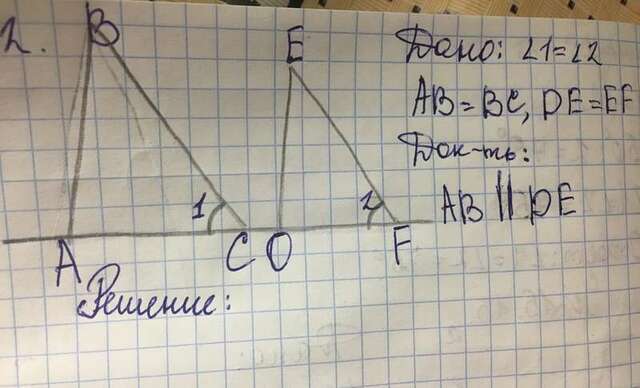 2.
B
E
Дано: ∠1=∠2
AB=BC, DE=EF
Док-ть:
AB || DE
1
2
A
C
O
F
Решение: